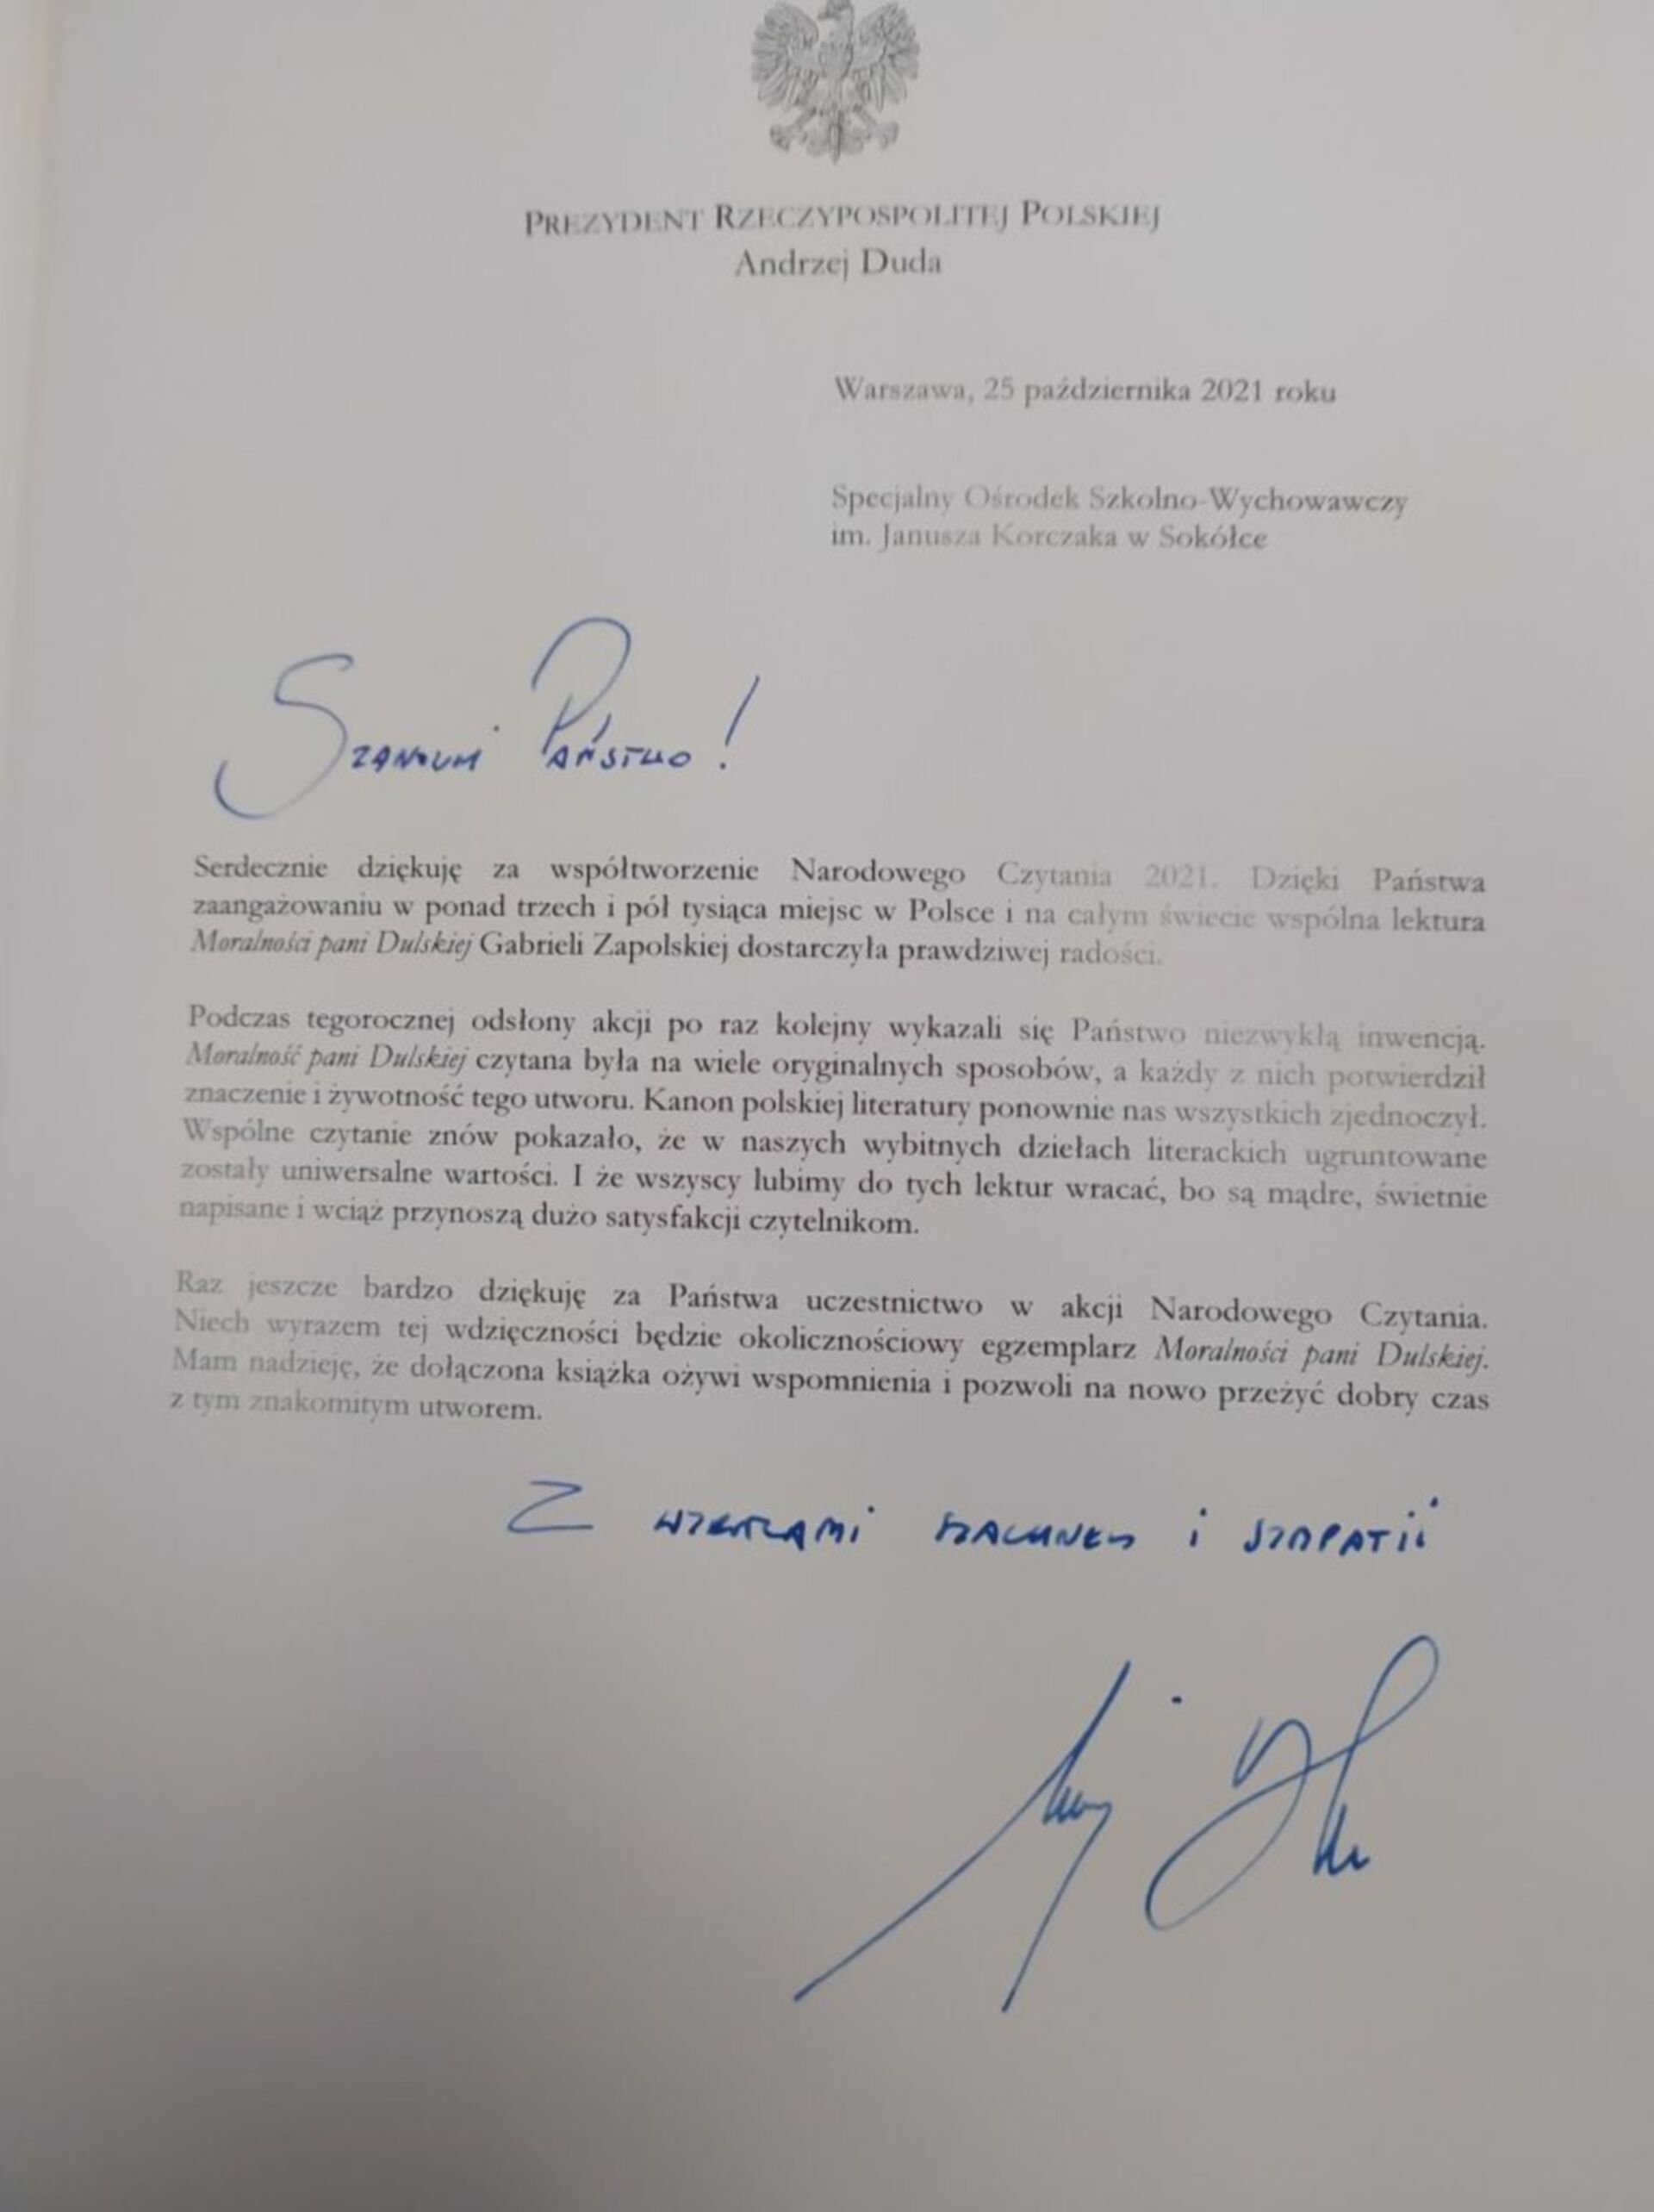 PREZYDENT RZECZYPOSPOLITEJ POLSKIEJ
Andrzej Duda
Warszawa, 25 października 2021 roku
Specjalny Ośrodek Szkolno-Wychowawczy
im. Janusza Korczaka w Sokółce
Szanowni Państwo!
Serdecznie dziękuję za współtworzenie Narodowego Czytania 2021. Dzięki Państwa
zaangażowaniu w ponad trzech i pół tysiąca miejsc w Polsce i na całym świecie wspólna lektura
Moralności pani Dulskiej Gabrieli Zapolskiej dostarczyła prawdziwej radości.
Podczas tegorocznej odsłony akcji po raz kolejny wykazali się Państwo niezwykłą inwencją.
Moralność pani Dulskiej czytana była na wiele oryginalnych sposobów, a każdy z nich potwierdził
znaczenie i żywotność tego utworu. Kanon polskiej literatury ponownie nas wszystkich zjednoczył.
Wspólne czytanie znów pokazało, że w naszych wybitnych dziełach literackich ugruntowane
zostały uniwersalne wartości. I że wszyscy lubimy do tych lektur wracać, bo są mądre, świetnie
napisane i wciąż przynoszą dużo satysfakcji czytelnikom.
Raz jeszcze bardzo dziękuję za Państwa uczestnictwo w akcji Narodowego Czytania.
Niech wyrazem tej wdzięczności będzie okolicznościowy egzemplarz Moralności pani Dulskiej.
Mam nadzieję, że dołączona książka ożywi wspomnienia i pozwoli na nowo przeżyć dobry czas
z tym znakomitym utworem.
Z wyrazami szacunku i sympatii